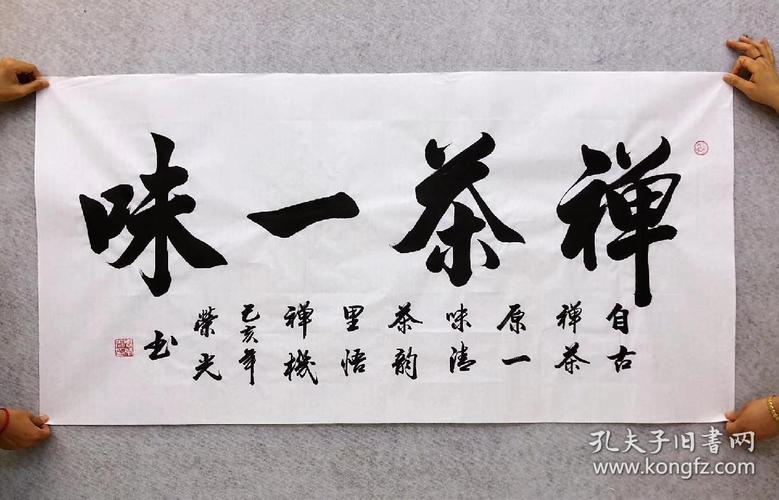 禅茶一味
自古
禅茶
原一
味清
茶韵
里悟
禅機
己亥年
榮光
书
孔夫子旧書网
www.kongfz.com